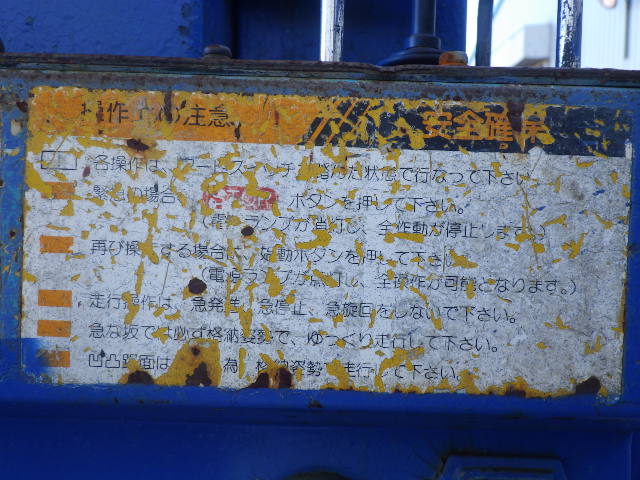 操作上の注意 安全確認
各操作は、フートスイッチ 踏んだ状態で行なって下さい。
緊急の場合 ボタンを押して下さい。
(電源ランプが消灯し、全作動が停止します。)
再び操作する場合は、始動ボタンを押して下さい
(電源ランプが点灯し、全操作が可能となります。)
走行操作は、急発進、急停止、急旋回をしないで下さい。
急な坂では必ず格納姿勢で、ゆっくり走行して下さい。
凹凸路面は 為 格納姿勢 走行して下さい。